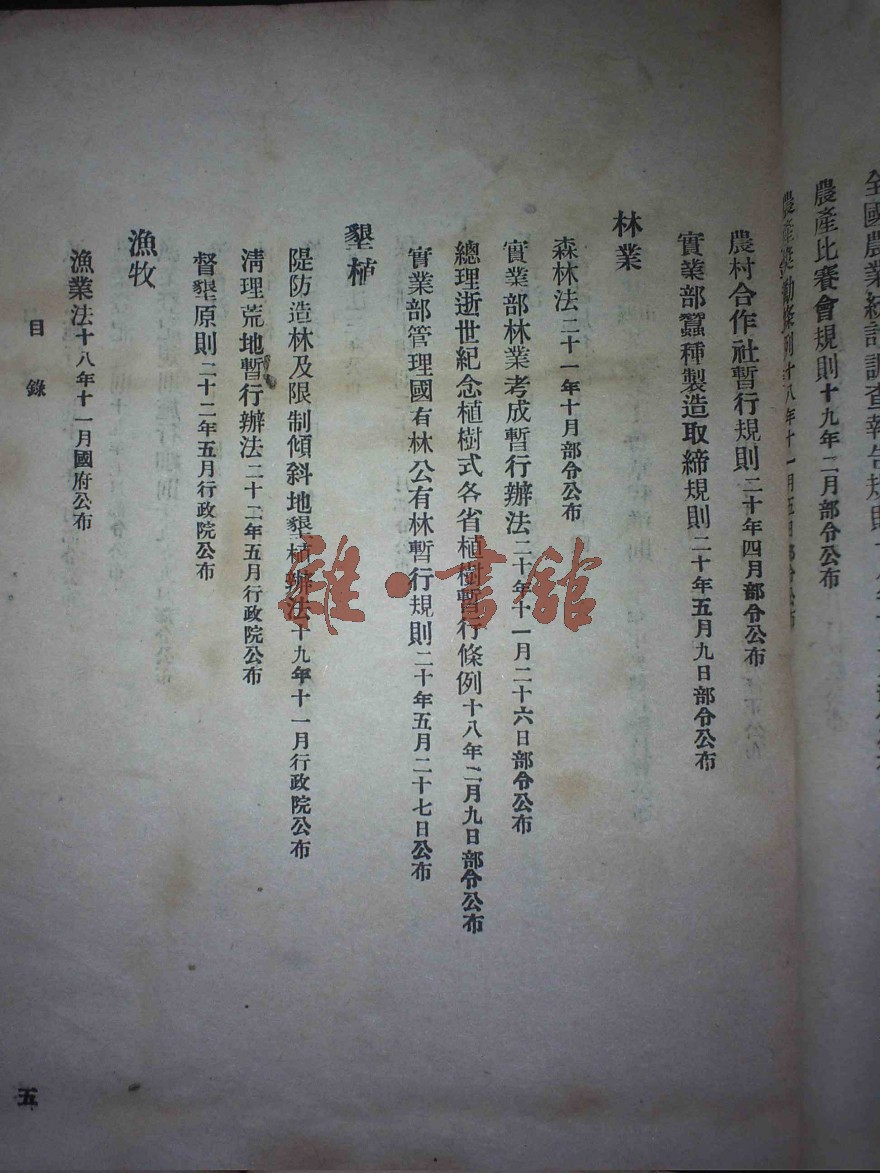 全國農業統計調查報告規則
農產比賽會規則十九年二月部令公布
農產獎勵條例十八年十一月五日部令公布
農村合作社暫行規則二十年四月部令公布
實業部蠶種製造取締規則二十年五月九日部令公布
林業
森林法二十一年十月部令公布
實業部林業考成暫行辦法二十年十一月二十六日部令公布
總理逝世紀念植樹式各省植樹暫行條例十八年二月九日部令公布
實業部管理國有林公有林暫行規則二十年五月二十七日公布
墾植
隄防造林及限制傾斜地墾植辦法十九年十一月行政院公布
清理荒地暫行辦法二十二年五月行政院公布
督墾原則二十二年五月行政院公布
漁牧
漁業法十八年十一月國府公布
目錄
五
雜·書館